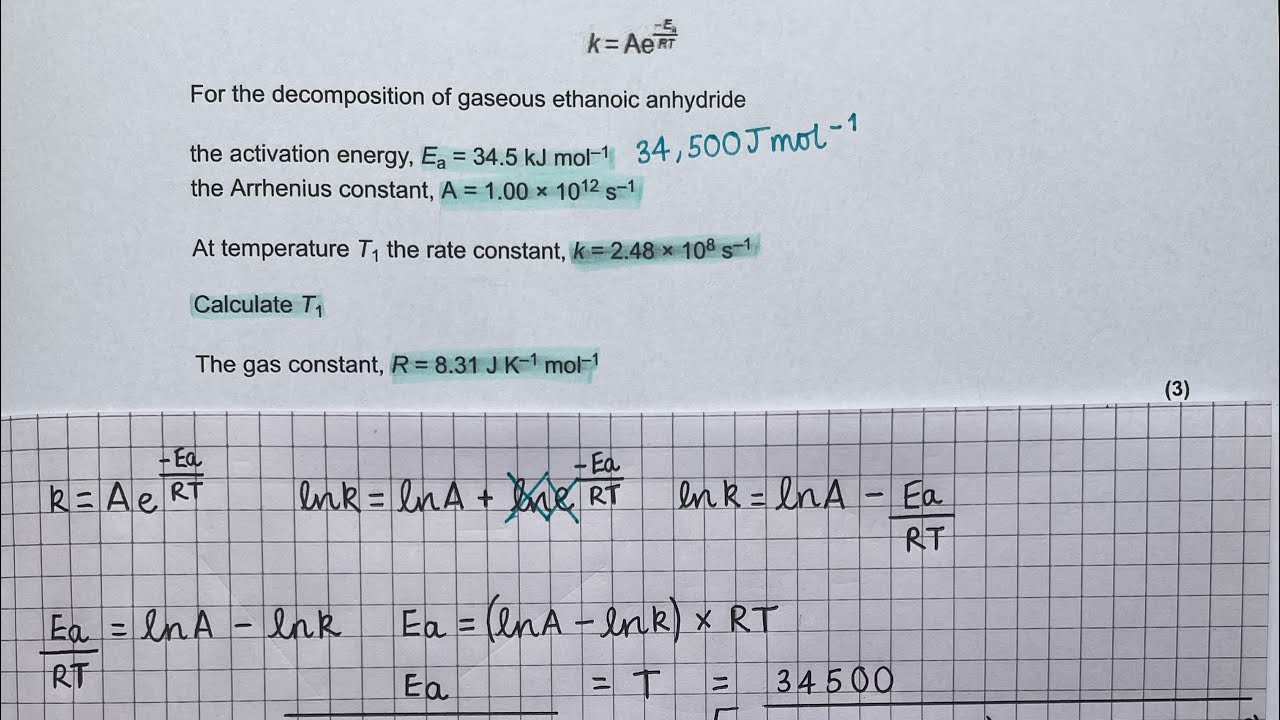 k = Ae^(-Ea/RT)
For the decomposition of gaseous ethanoic anhydride
the activation energy, Ea = 34.5 kJ mol⁻¹ 34,500 J mol⁻¹
the Arrhenius constant, A = 1.00 × 10¹² s⁻¹
At temperature T₁ the rate constant, k = 2.48 × 10⁸ s⁻¹
Calculate T₁
The gas constant, R = 8.31 J K⁻¹ mol⁻¹
(3)
k = Ae^(-Ea/RT) lnk = lnA + lne^(-Ea/RT) lnk = lnA - Ea/RT
Ea/RT = lnA - lnk Ea = (lnA - lnk) × RT
Ea = T = 34500